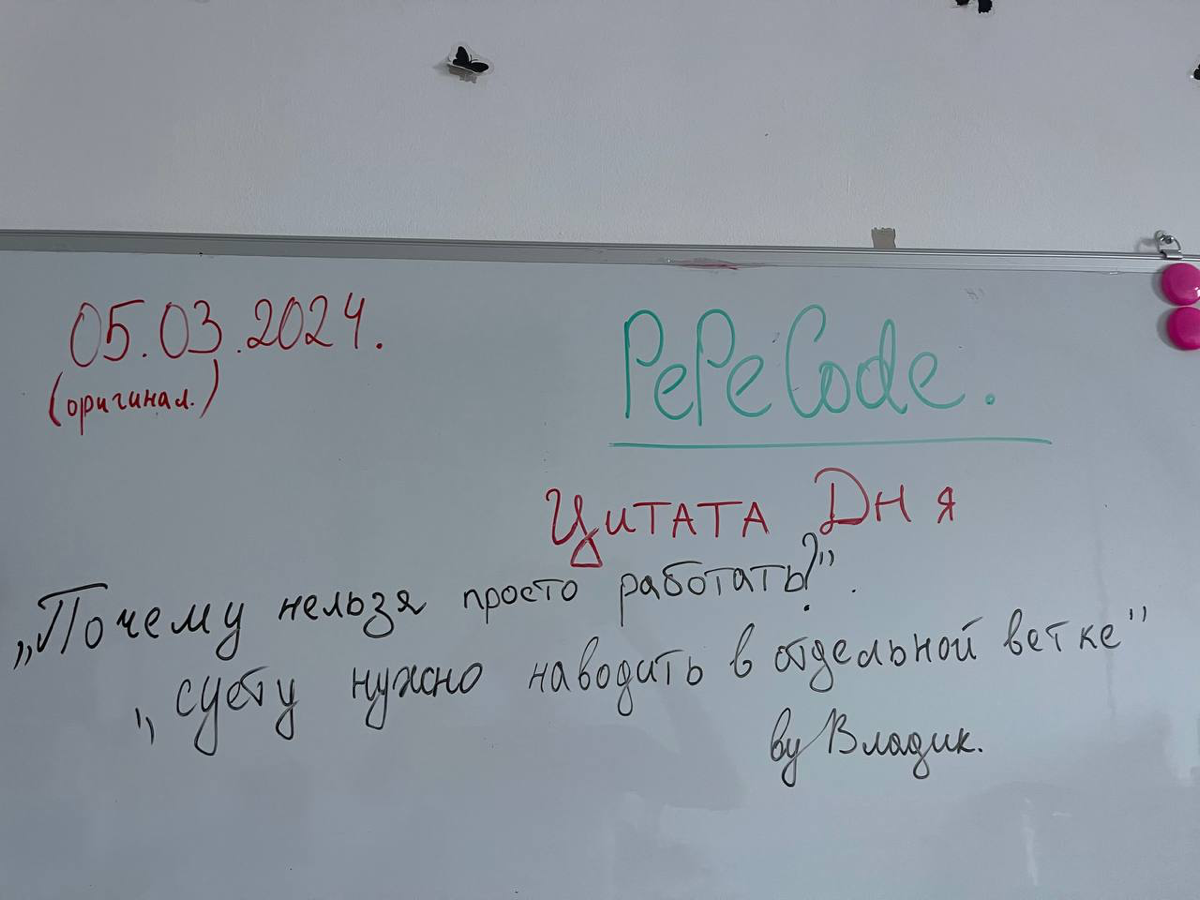 05.03.2024.
(оригинал.)
PePeCode.
Цитата Дня
„Почему нельзя просто работать?".
„суету нужно наводить в отдельной ветке"
by Владик.